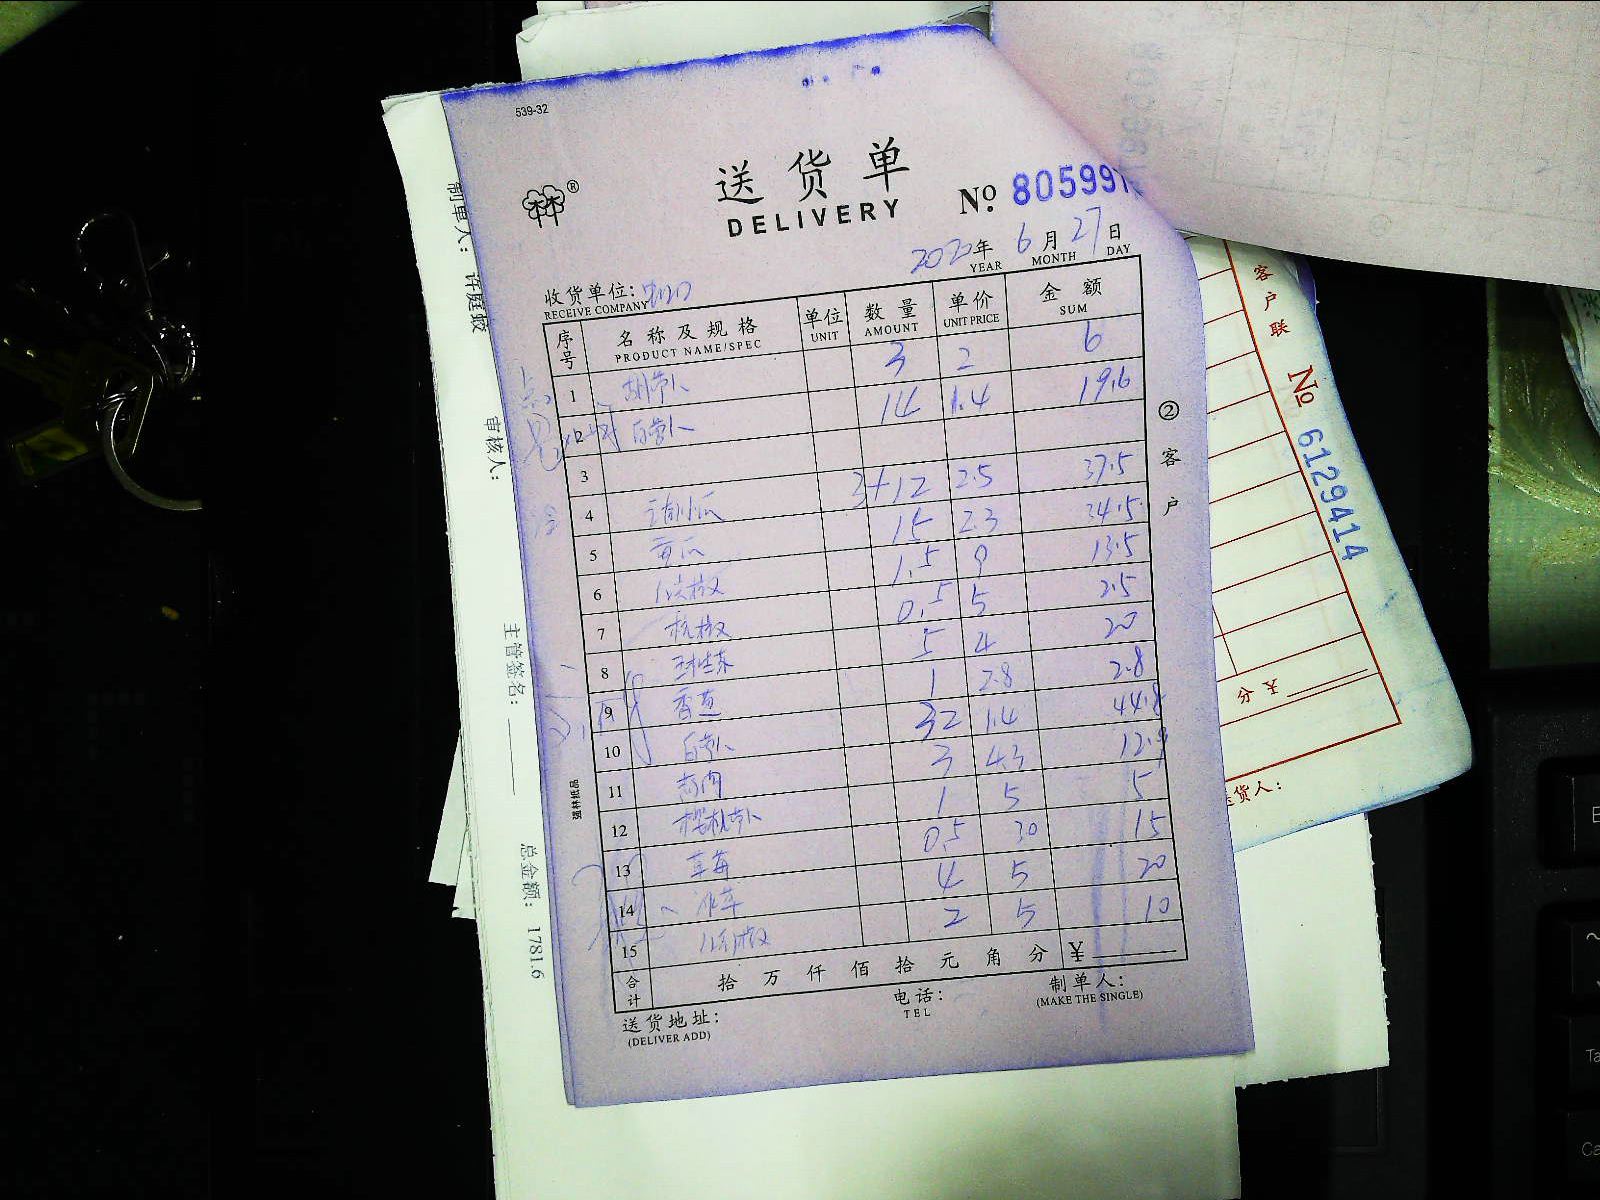 539-32
送货单
DELIVERY
№ 805997
2020年 6月 27日
YEAR MONTH DAY
收货单位:
RECEIVE COMPANY
序号 名称及规格 单位 数量 单价 金额
PRODUCT NAME/SPEC UNIT AMOUNT UNIT PRICE SUM
1 胡萝卜 3 2 6
2 白萝卜 14 1.4 19.6
3
4 3+12 2.5 37.5
5 黄瓜 15 2.3 34.5
6 1.5 9 13.5
7 杭椒 0.5 5 2.5
8 5 4 20
9 香葱 1 2.8 2.8
10 白萝卜 32 1.4 44.8
11 3 4.3 12.9
12 樱桃萝卜 1 5 5
13 草莓 0.5 30 15
14 冰草 4 5 20
15 2 5 10
合计 拾 万 仟 佰 拾 元 角 分 ¥
送货地址:
(DELIVER ADD)
电话:
TEL
制单人:
(MAKE THE SINGLE)
②客户
强林纸品
制单人: 许庭蛟
审核人:
主管签名:
总金额: 1781.6
客户联
№ 6129414
分 ¥
送货人: